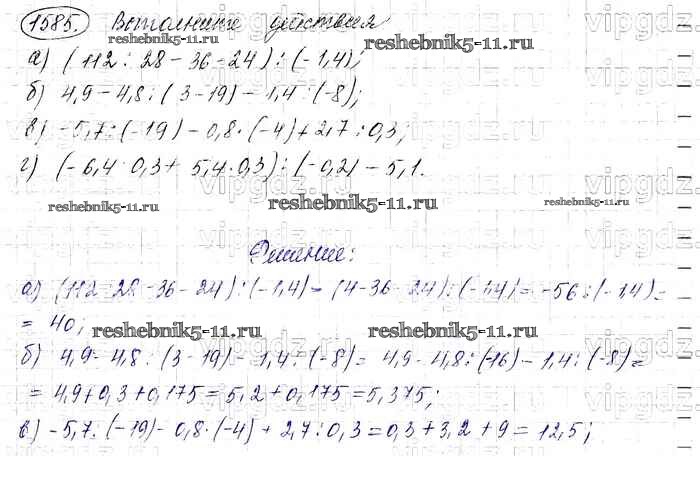 1585. Выполните действия
reshebnik5-11.ru
а) (112 : 28 - 36 - 24) : (-1,4);
б) 4,9 - 4,8 : (3 - 19) - 1,4 : (-8);
в) -5,7 : (-19) - 0,8 · (-4) + 2,7 : 0,3;
г) (-6,4 · 0,3 + 5,4 · 0,3) : (-0,2) - 5,1.
reshebnik5-11.ru reshebnik5-11.ru
Решение:
а) (112 : 28 - 36 - 24) : (-1,4) = (4 - 36 - 24) : (-1,4) = -56 : (-1,4) =
= 40; reshebnik5-11.ru reshebnik5-11.ru
б) 4,9 - 4,8 : (3 - 19) - 1,4 : (-8) = 4,9 - 4,8 : (-16) - 1,4 : (-8) =
= 4,9 + 0,3 + 0,175 = 5,2 + 0,175 = 5,375;
в) -5,7 : (-19) - 0,8 · (-4) + 2,7 : 0,3 = 0,3 + 3,2 + 9 = 12,5;